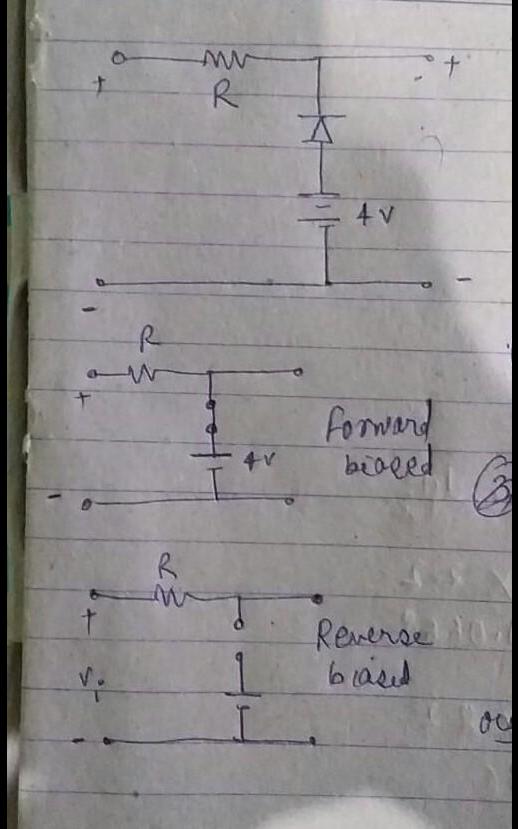 + R - +
4 V
- -
R
+
4V
Forward
biased
- 3
R
+
Reverse
biased
Vi
-